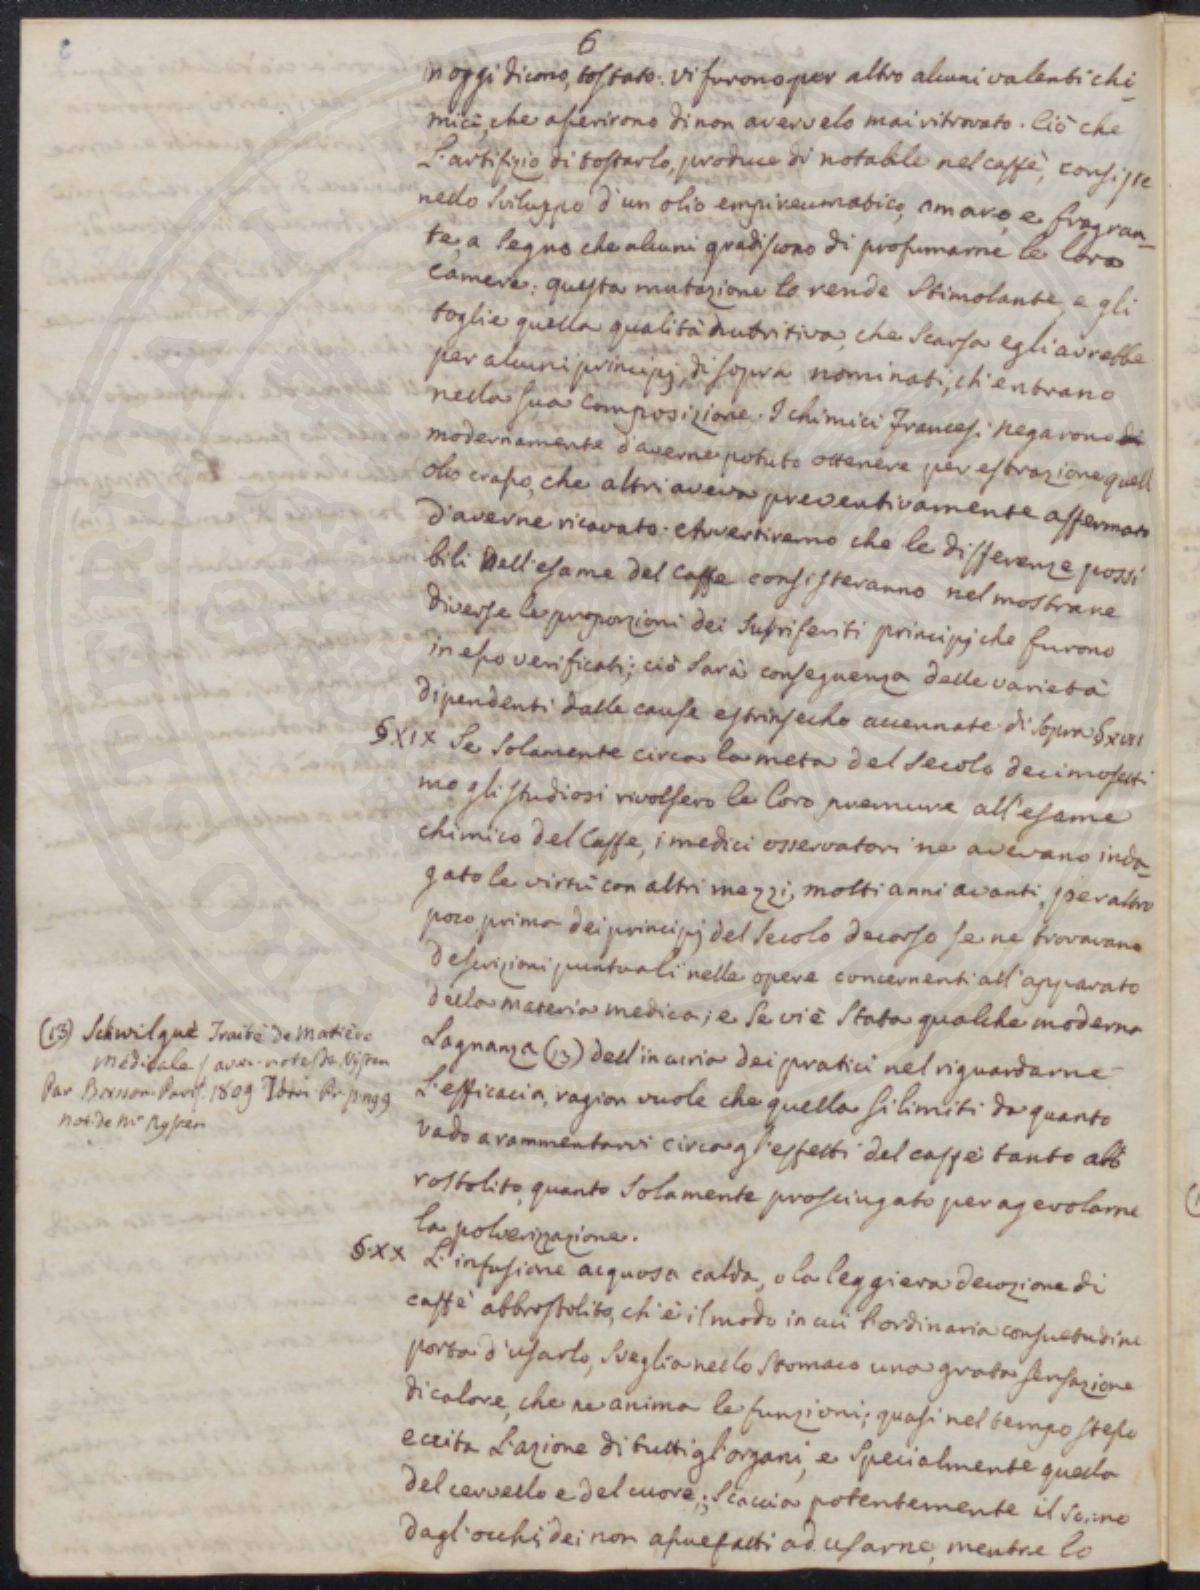 6
in oggi dicono, tostato. Vi furono per altro alcuni valenti chi-
mici, che asserirono di non avervelo mai ritrovato. Ciò che
L'artifizio di tostarlo, produce di notabile nel caffè, consiste
nello sviluppo d'un olio empireumatico, amaro, e fragran-
te, a segno che alcuni gradiscono di profumarne le loro
camere: questa mutazione lo rende Stimolante, e gli
toglie quella qualità nutritiva, che scarsa egli avrebbe
per alcuni principj di sopra nominati, ch'entrano
nella sua composizione. I chimici Francesi negarono
modernamente d'averne potuto ottenere per estrazione quell'
olio crasso, che altri aveva preventivamente affermato
d'averne ricavato. Avvertiremo che le differenze possi
bili nell'esame del Caffe consisteranno nel mostrare
diverse le proporzioni dei Supriferiti principj che furono
in esso verificati; ciò sarà conseguenza delle varietà
dipendenti dalle cause estrinseche accennate di sopra § XVII
§ XIX Se solamente circa la metà del Secolo decimosetti
mo gli studiosi rivolsero le loro premure all'esame
chimico del Caffe, i medici osservatori ne avevano inda-
gato le virtù con altri mezzi, molti anni avanti, per altro
poco prima dei principj del Secolo decorso se ne trovavano
descrizioni puntuali nelle opere concernenti all'apparato
della materia medica; e se vi è Stata qualche moderna
Lagnanza (13) dell'incuria dei pratici nel riguardarne
L'efficacia, ragion vuole che quella si limiti da quanto
vado a rammentarvi circa gl'effetti del caffè tanto abb
rostolito, quanto solamente prosciugato per agevolarne
la polverizzazione.
(13) Schwilguè Traité de Matière
Médicale
Par Paris. 1809
§. XX L'infusione acquosa calda, o la leggiera decozione di
caffè abbrostolito, ch'è il modo in cui l'ordinaria consuetudine
porta d'usarlo, sveglia nello Stomaco una grata sensazione
di calore, che ne anima le funzioni; quasi nel tempo stesso
eccita L'azione di tutti gl'organi, e Specialmente quella
del cervello e del cuore; Scaccia potentemente il sonno
dagl'occhi dei non assuefatti ad usarne, mentre lo